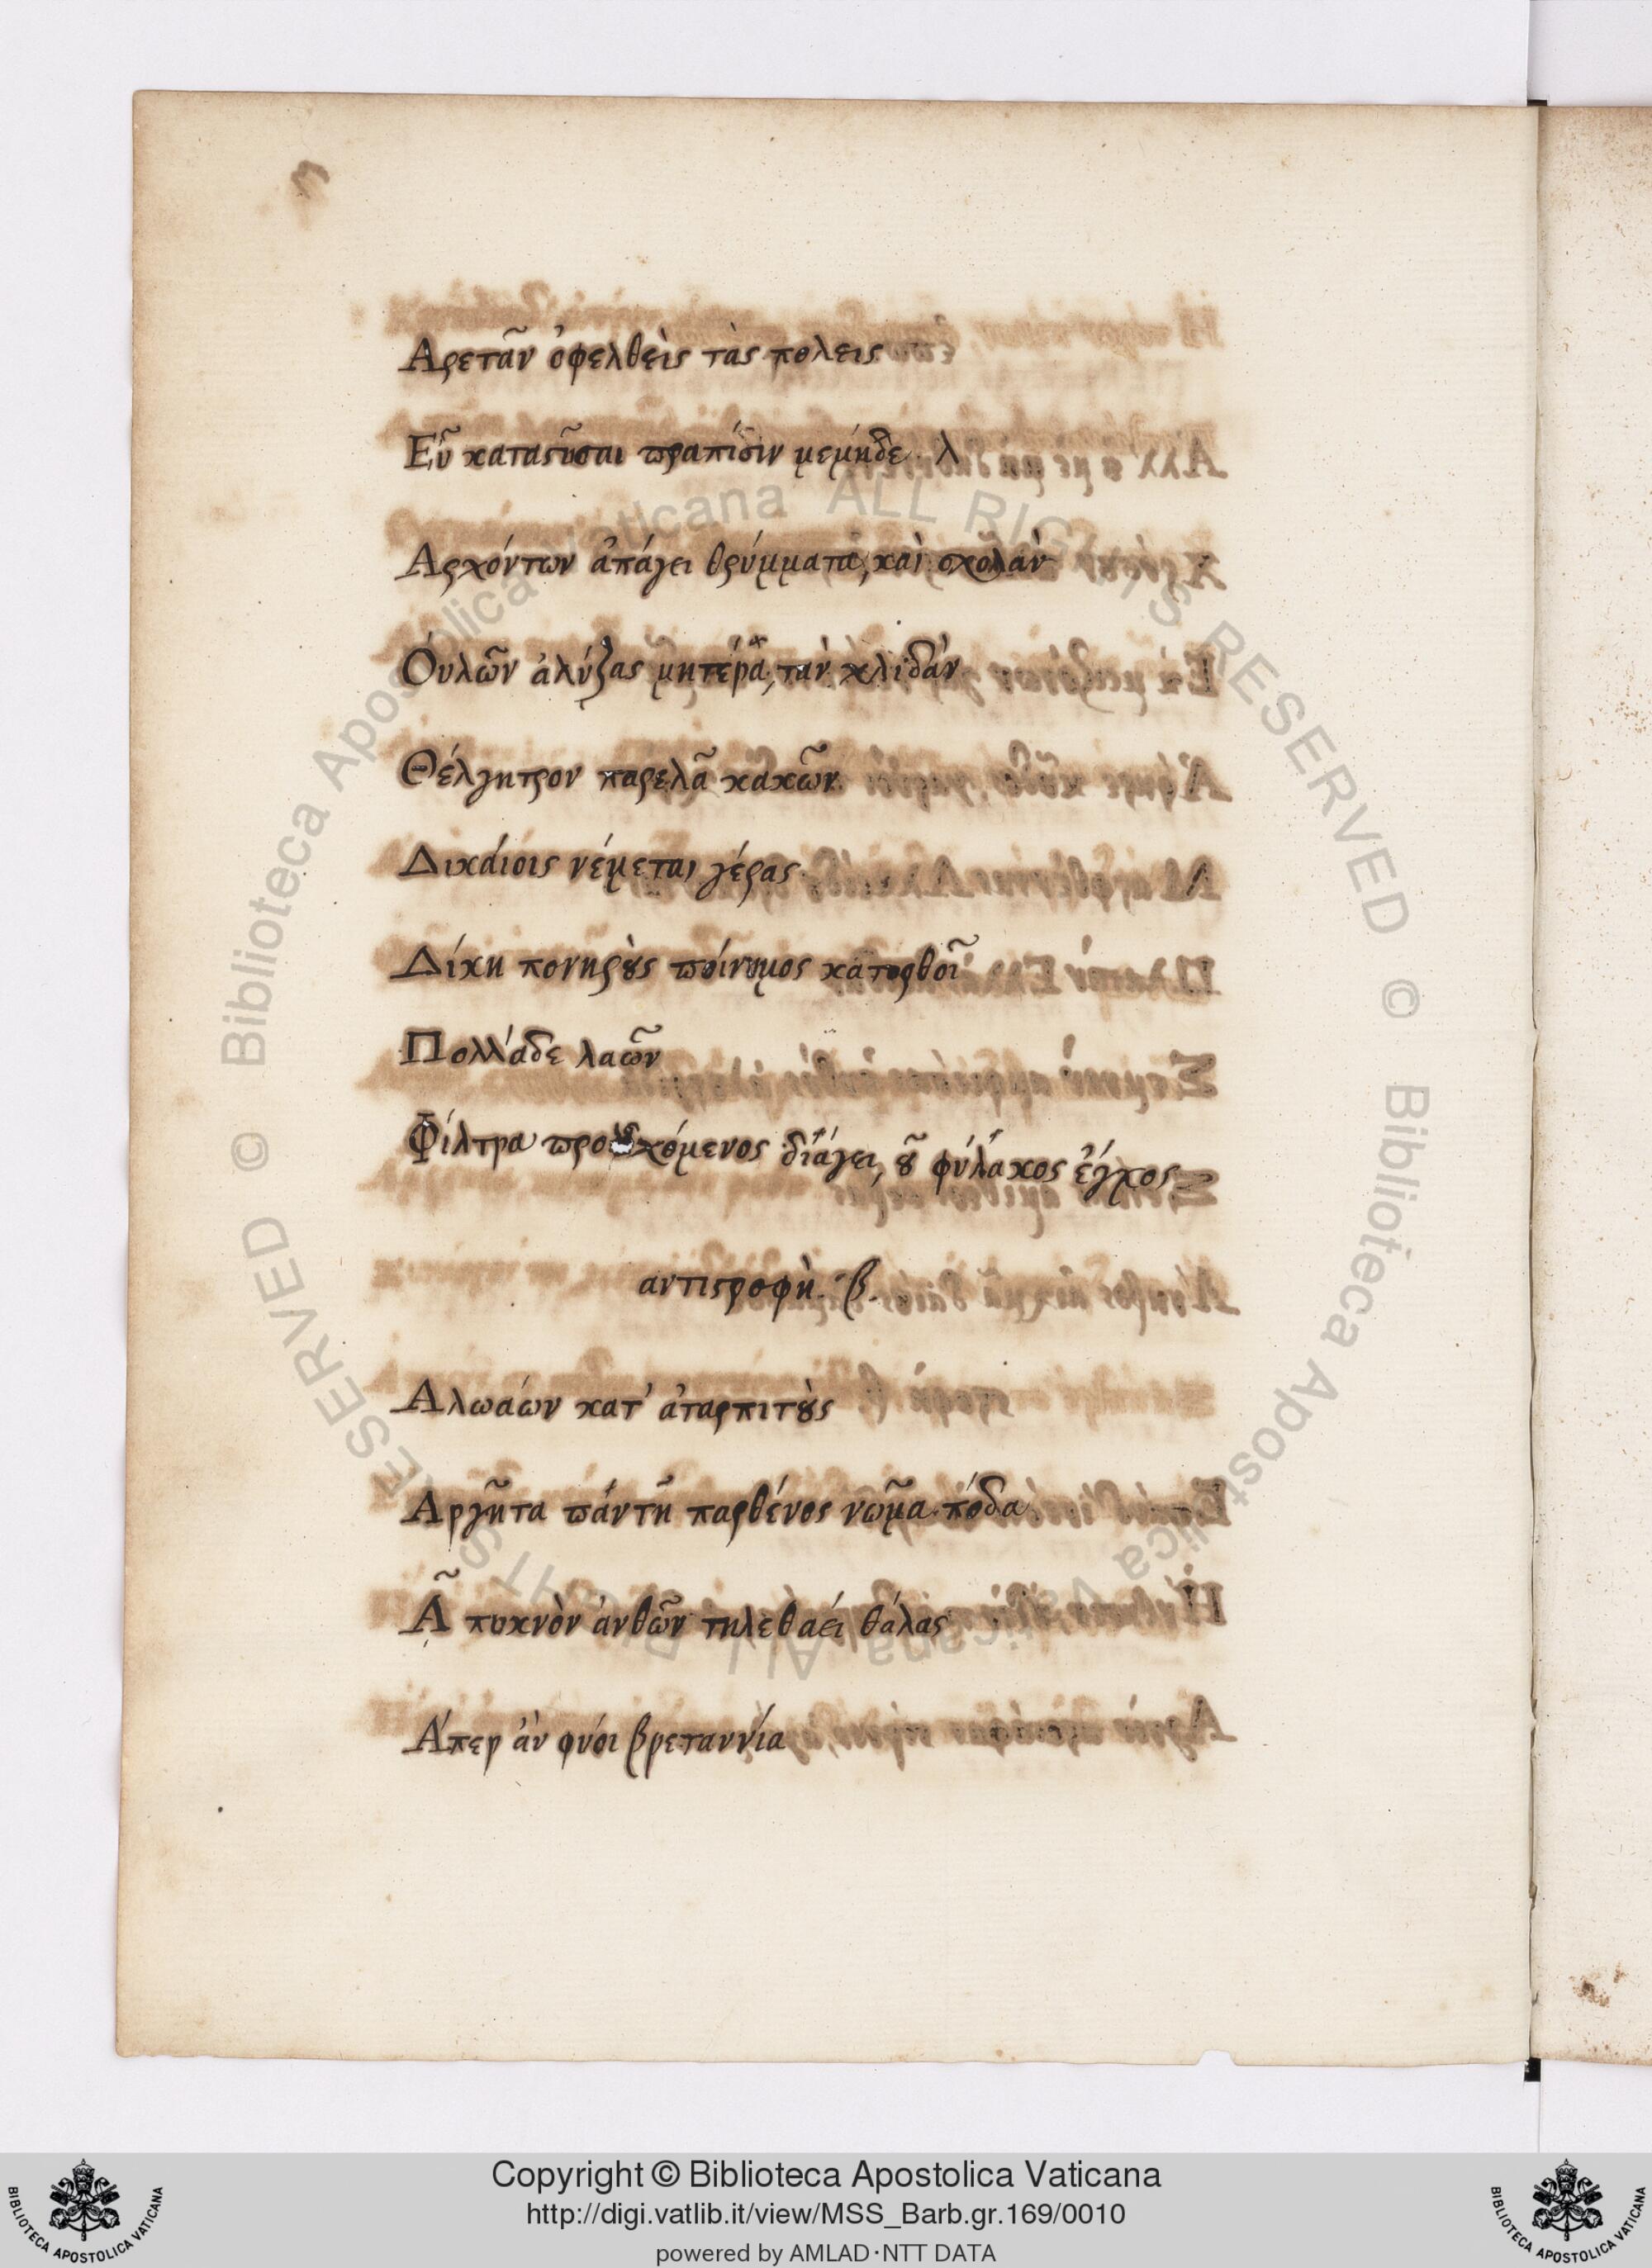 Αρετᾶν ὀφελθεὶς τὰς πολεις
Εὖ καταϛῦσαι πραπίδιν μεμήδε. λ
Αρχόντων ἀπάγει θρύμματα, καὶ σχολὰν
Ὀυλῶν ἀλύξας μητέρα, τὰν χλιδὰν
Θέλγητρον παρελᾶ κακῶν
Δικάιοις νέμεται γέρας
Δίκη πονηρȣ̀ς ποίνιμος κατορθοῖ
Πολλάδε λαῶν
Φίλτρα χόμενος διάγει, ȣ̃ φύλακος ἔγχος
αντιϛροφὴ. β.
Αλωάων κατ' ἀταρπιτȣ̀ς
Αργῆτα πάντῃ παρθένος νωμᾶ πόδα
ᾯ πυκνὸν ἀνθῶν τηλεθαέι θάλας
Ἅπερ ἀν φύοι βρεταννία
Copyright © Biblioteca Apostolica Vaticana
http://digi.vatlib.it/view/MSS_Barb.gr.169/0010
powered by AMLAD·NTT DATA